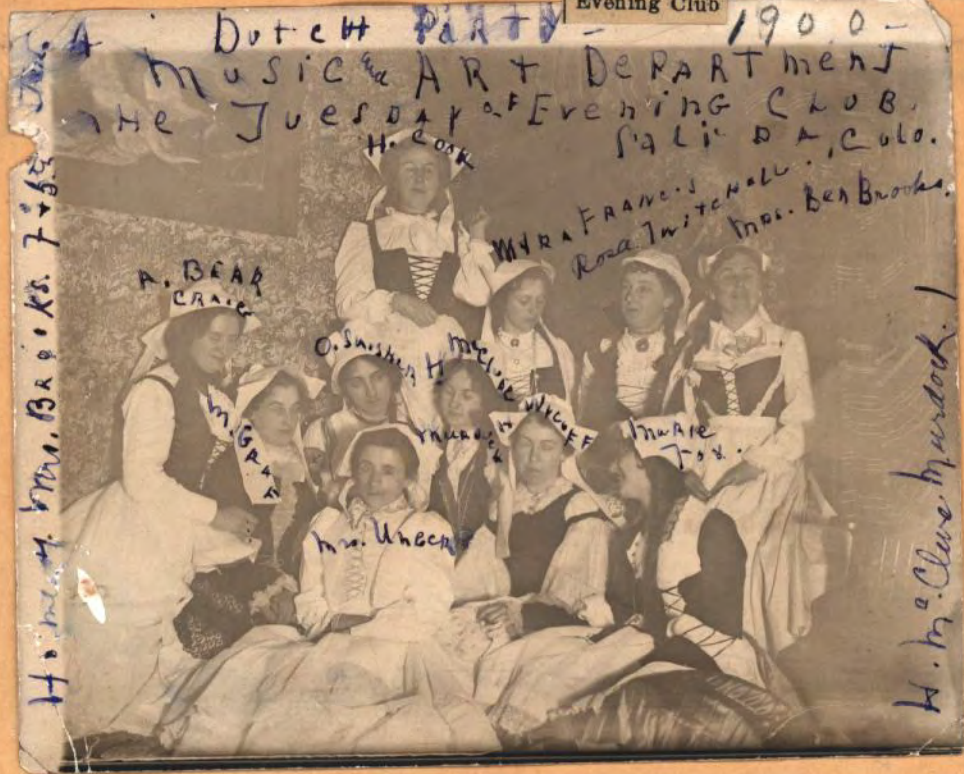 Evening Club
A Dutch Party - 1900 -
Music and Art Department
The Tuesday of Evening Club.
Salida, Colo.
H. Cook
Myra Francis
Rosa Twitchell
Mrs. Ben Brooks.
A. Bear
Craig
O. Swisher
H. McClure
Murdock
Wycoff
M. Graff
Marie
Fox.
Mrs. Unger
Home of Mrs. Brooks. 7th St.
H. McClure Murdock!